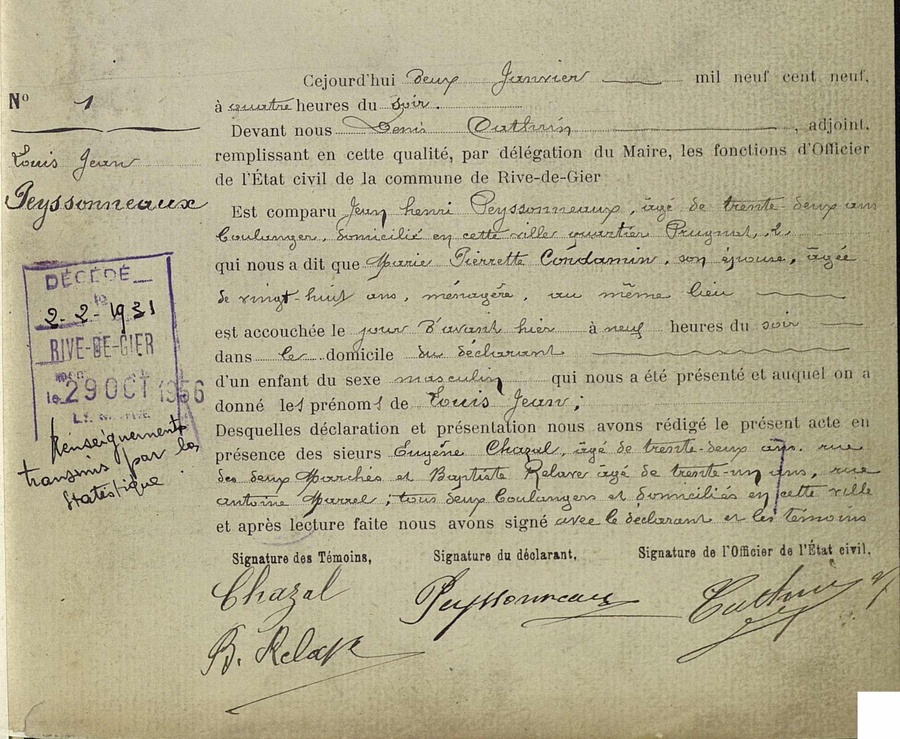 Nº 1
Louis Jean
Peyssonneaux
DÉCÉDÉ
le
2-2-1931
RIVE-DE-GIER
le 29 OCT 1956
Renseignements
transmis par la
Statistique.
Cejourd'hui deux Janvier mil neuf cent neuf,
à quatre heures du soir.
Devant nous Denis Cuthin, adjoint,
remplissant en cette qualité, par délégation du Maire, les fonctions d'Officier
de l'État civil de la commune de Rive-de-Gier
Est comparu Jean henri Peyssonneaux, âgé de trente deux ans
boulanger, domicilié en cette ville quartier Prugnat, 2.
qui nous a dit que Marie Pierrette Condamin, son épouse, âgée
de vingt-huit ans, ménagère, au même lieu
est accouchée le jour d'avant hier à neuf heures du soir
dans le domicile du déclarant
d'un enfant du sexe masculin qui nous a été présenté et auquel on a
donné les prénoms de Louis Jean;
Desquelles déclaration et présentation nous avons rédigé le présent acte en
présence des sieurs Eugène Chazal, âgé de trente-deux ans, rue
des deux Marchés et Baptiste Relave âgé de trente-un ans, rue
antoine Marrel; tous deux boulangers et domiciliés en cette ville
et après lecture faite nous avons signé avec le déclarant et les témoins
Signature des Témoins, Signature du déclarant, Signature de l'Officier de l'État civil,
Chazal Peyssonneaux
B. Relave